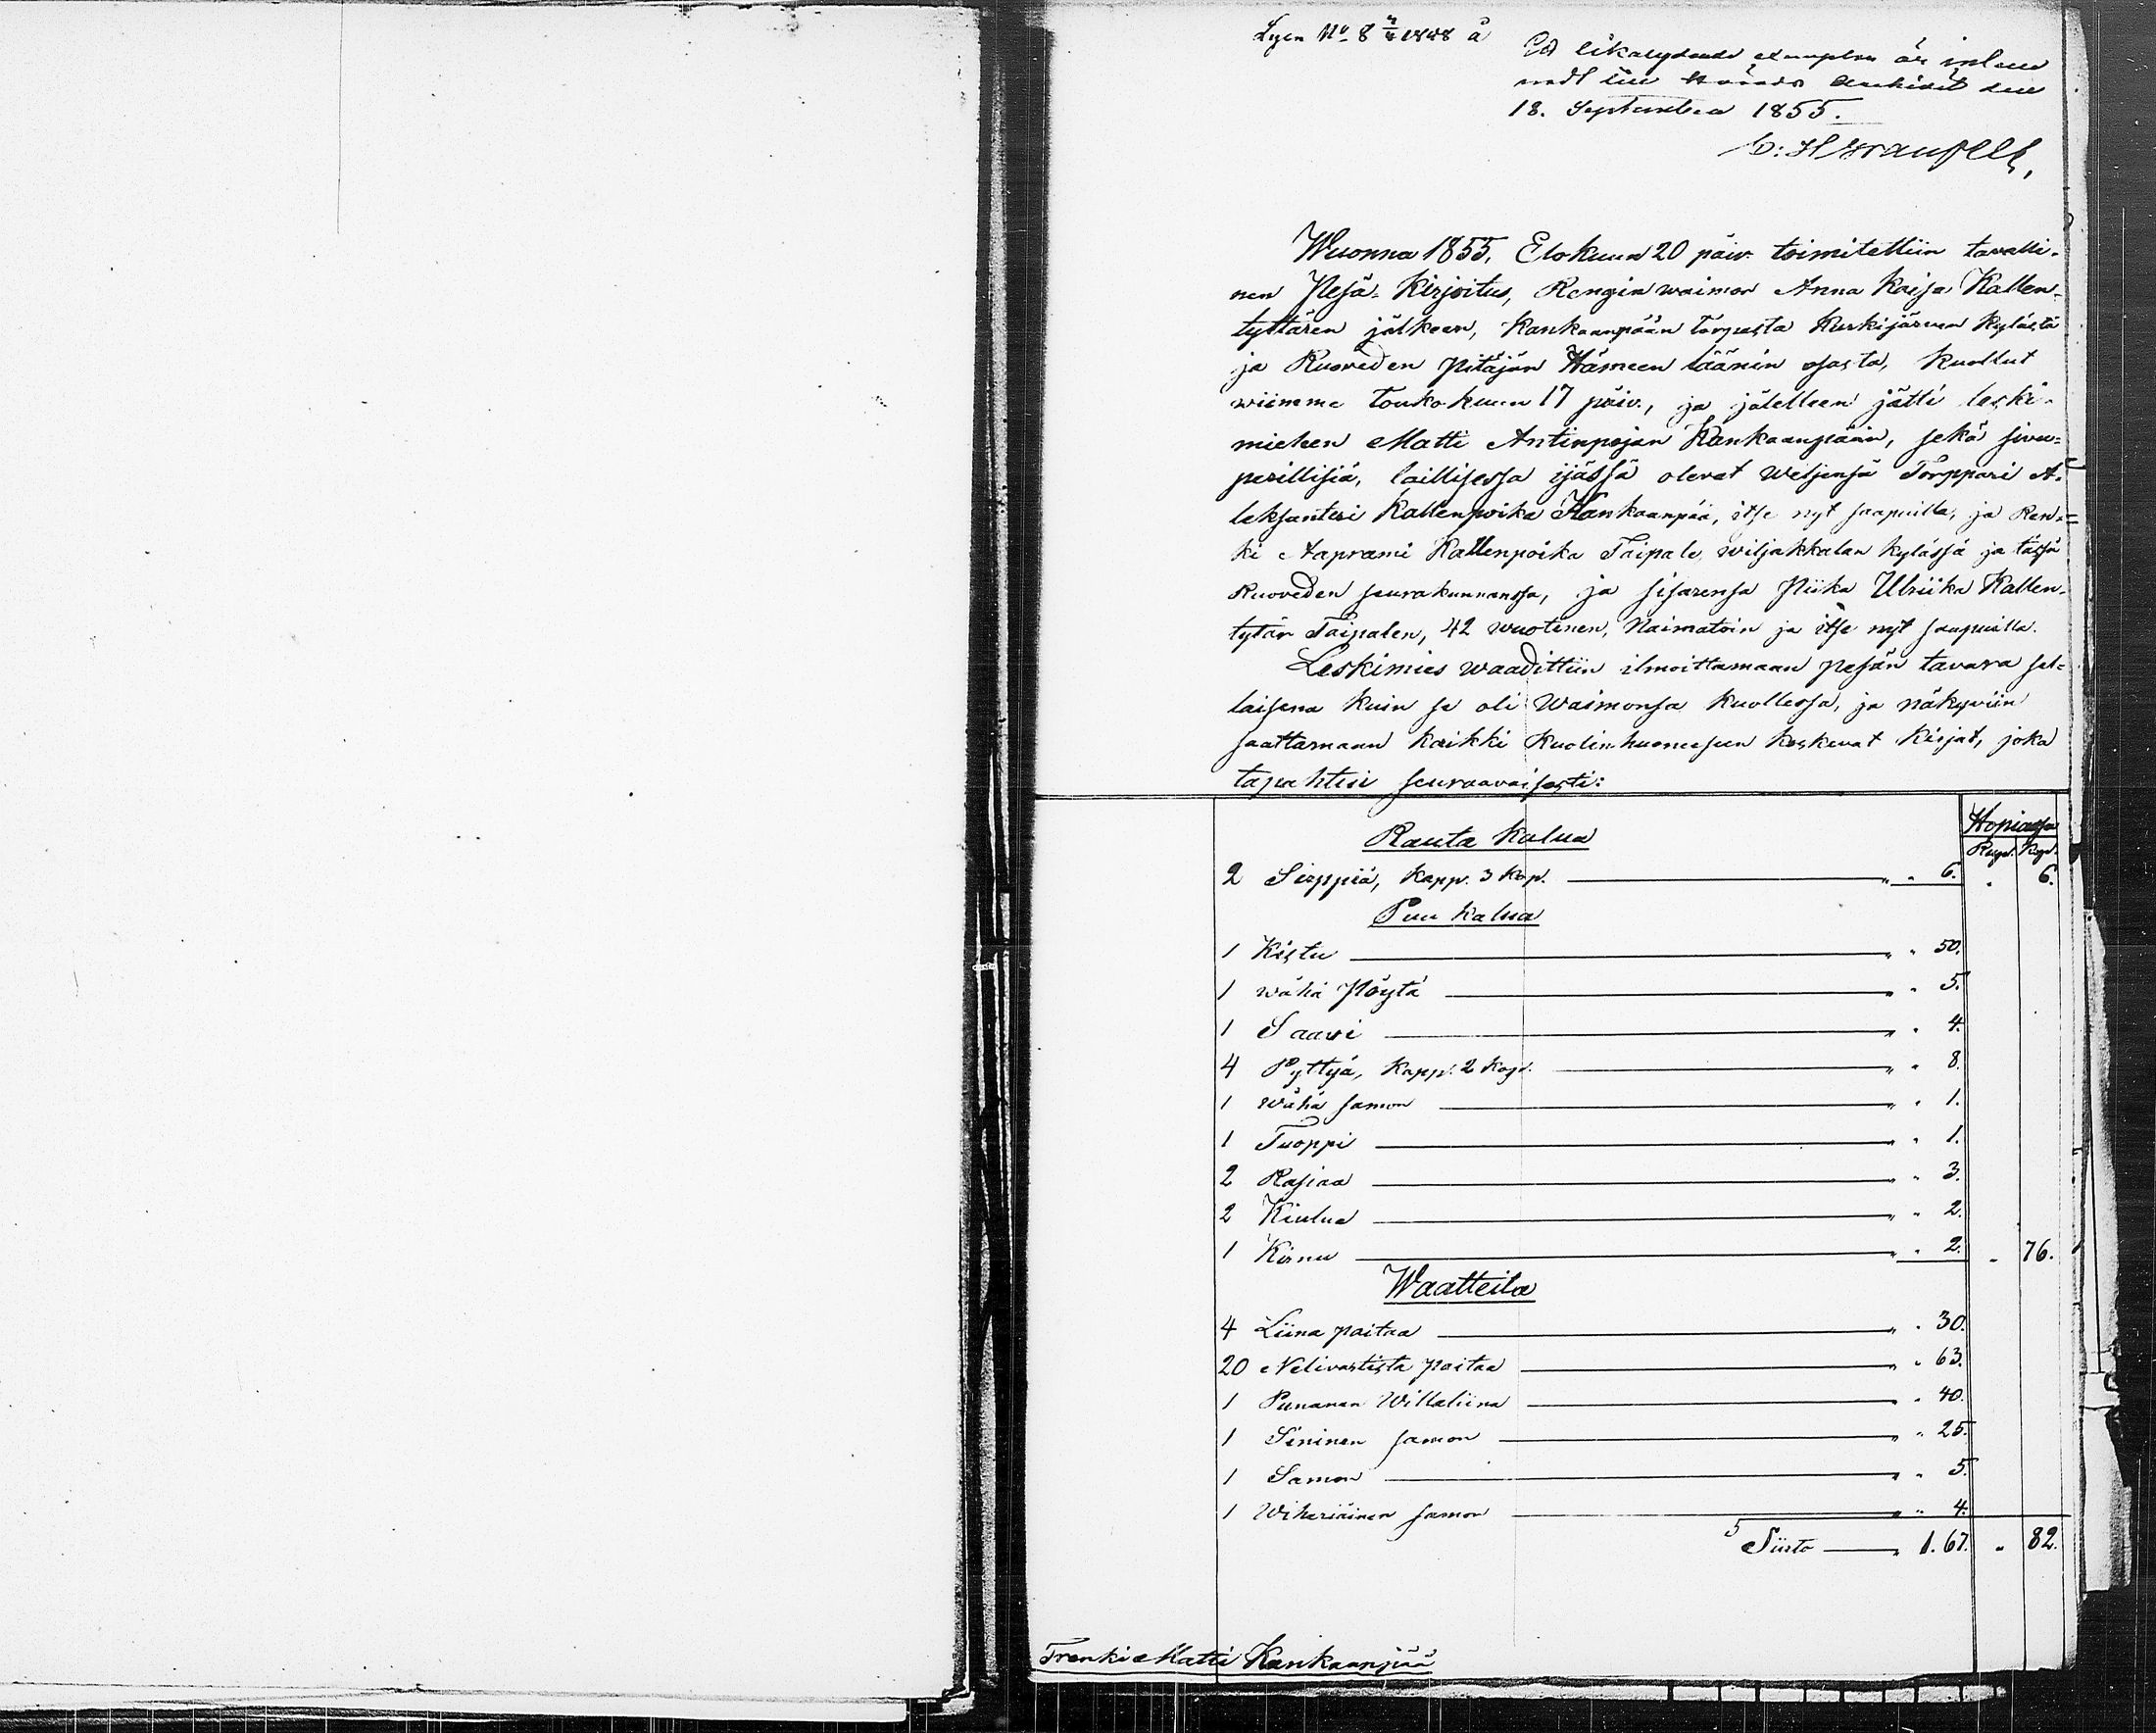 Ett likalydande exemplar är inlem
nadt till Härads Archivet den
18. September 1855.
Wuonna 1855, Elokuun 20 päiv. toimitettiin tavalli-
nen Pesä-Kirjoitus, Rengin waimon Anna Kaisa Kallen-
tyttären jälkeen, Kankaanpään torpasta Kurkijärven Kylästä
ja Ruoveden Pitäjän Hämeen läänin osasta, Kuollut
wiimme Toukokuun 17 päiv., ja jälelleen jätti leski-
miehen Matti Antinpojan Kankaanpään, sekä sivu=
perillisiä, laillisessa ijässä olevat Weljensä Torppari A-
leksanteri Kallenpoika Kankaanpää, itse nyt saapuilla, ja Ren-
ki Aaprami Kallenpoika Taipale, wiljakkalan Kylässä ja tässä
Ruoveden seurakunnassa, ja sisarensa Piika Ulriika Kallen-
tytär Taipalen, 42 wuotinen, Naimatoin ja itse nyt saapuilla.
Leskimies waadittiin ilmoittamaan pesän tavara sel-
laisena kuin se oli Waimonsa kuollessa, ja näkyviin
saattamaan kaikki Kuolinhuoneeseen koskevat kirjat, joka
tapahtui seuraavaisesti:
Hopiassa
Rupl. Kop.
Rauta Kalua
2 Sirppiä, Kapp. 3 Kop. " " 6. " 6.
Puu Kalua
1 Kistu " " 50.
1 wähä Pöytä " " 5.
1 Saawi " " 4.
4 Pyttyä, Kapp. 2 Kop. " " 8.
1 Wähä samon " " 1.
1 Tuoppi " " 1.
2 Rasiaa " " 3.
2 Kiulua " " 2.
1 Kirnu " " 2. " 76.
Waatteita
4 Liina paitaa " " 30.
20 Nelivartista paitaa " " 63.
1 Punanen Willaliina " " 40.
1 Sininen samon " " 25.
1 Samon " " 5.
1 Wiheriäinen samon " " 4.
Siirto " 1.67. " 82.
Trenki Matti Kankaanpää